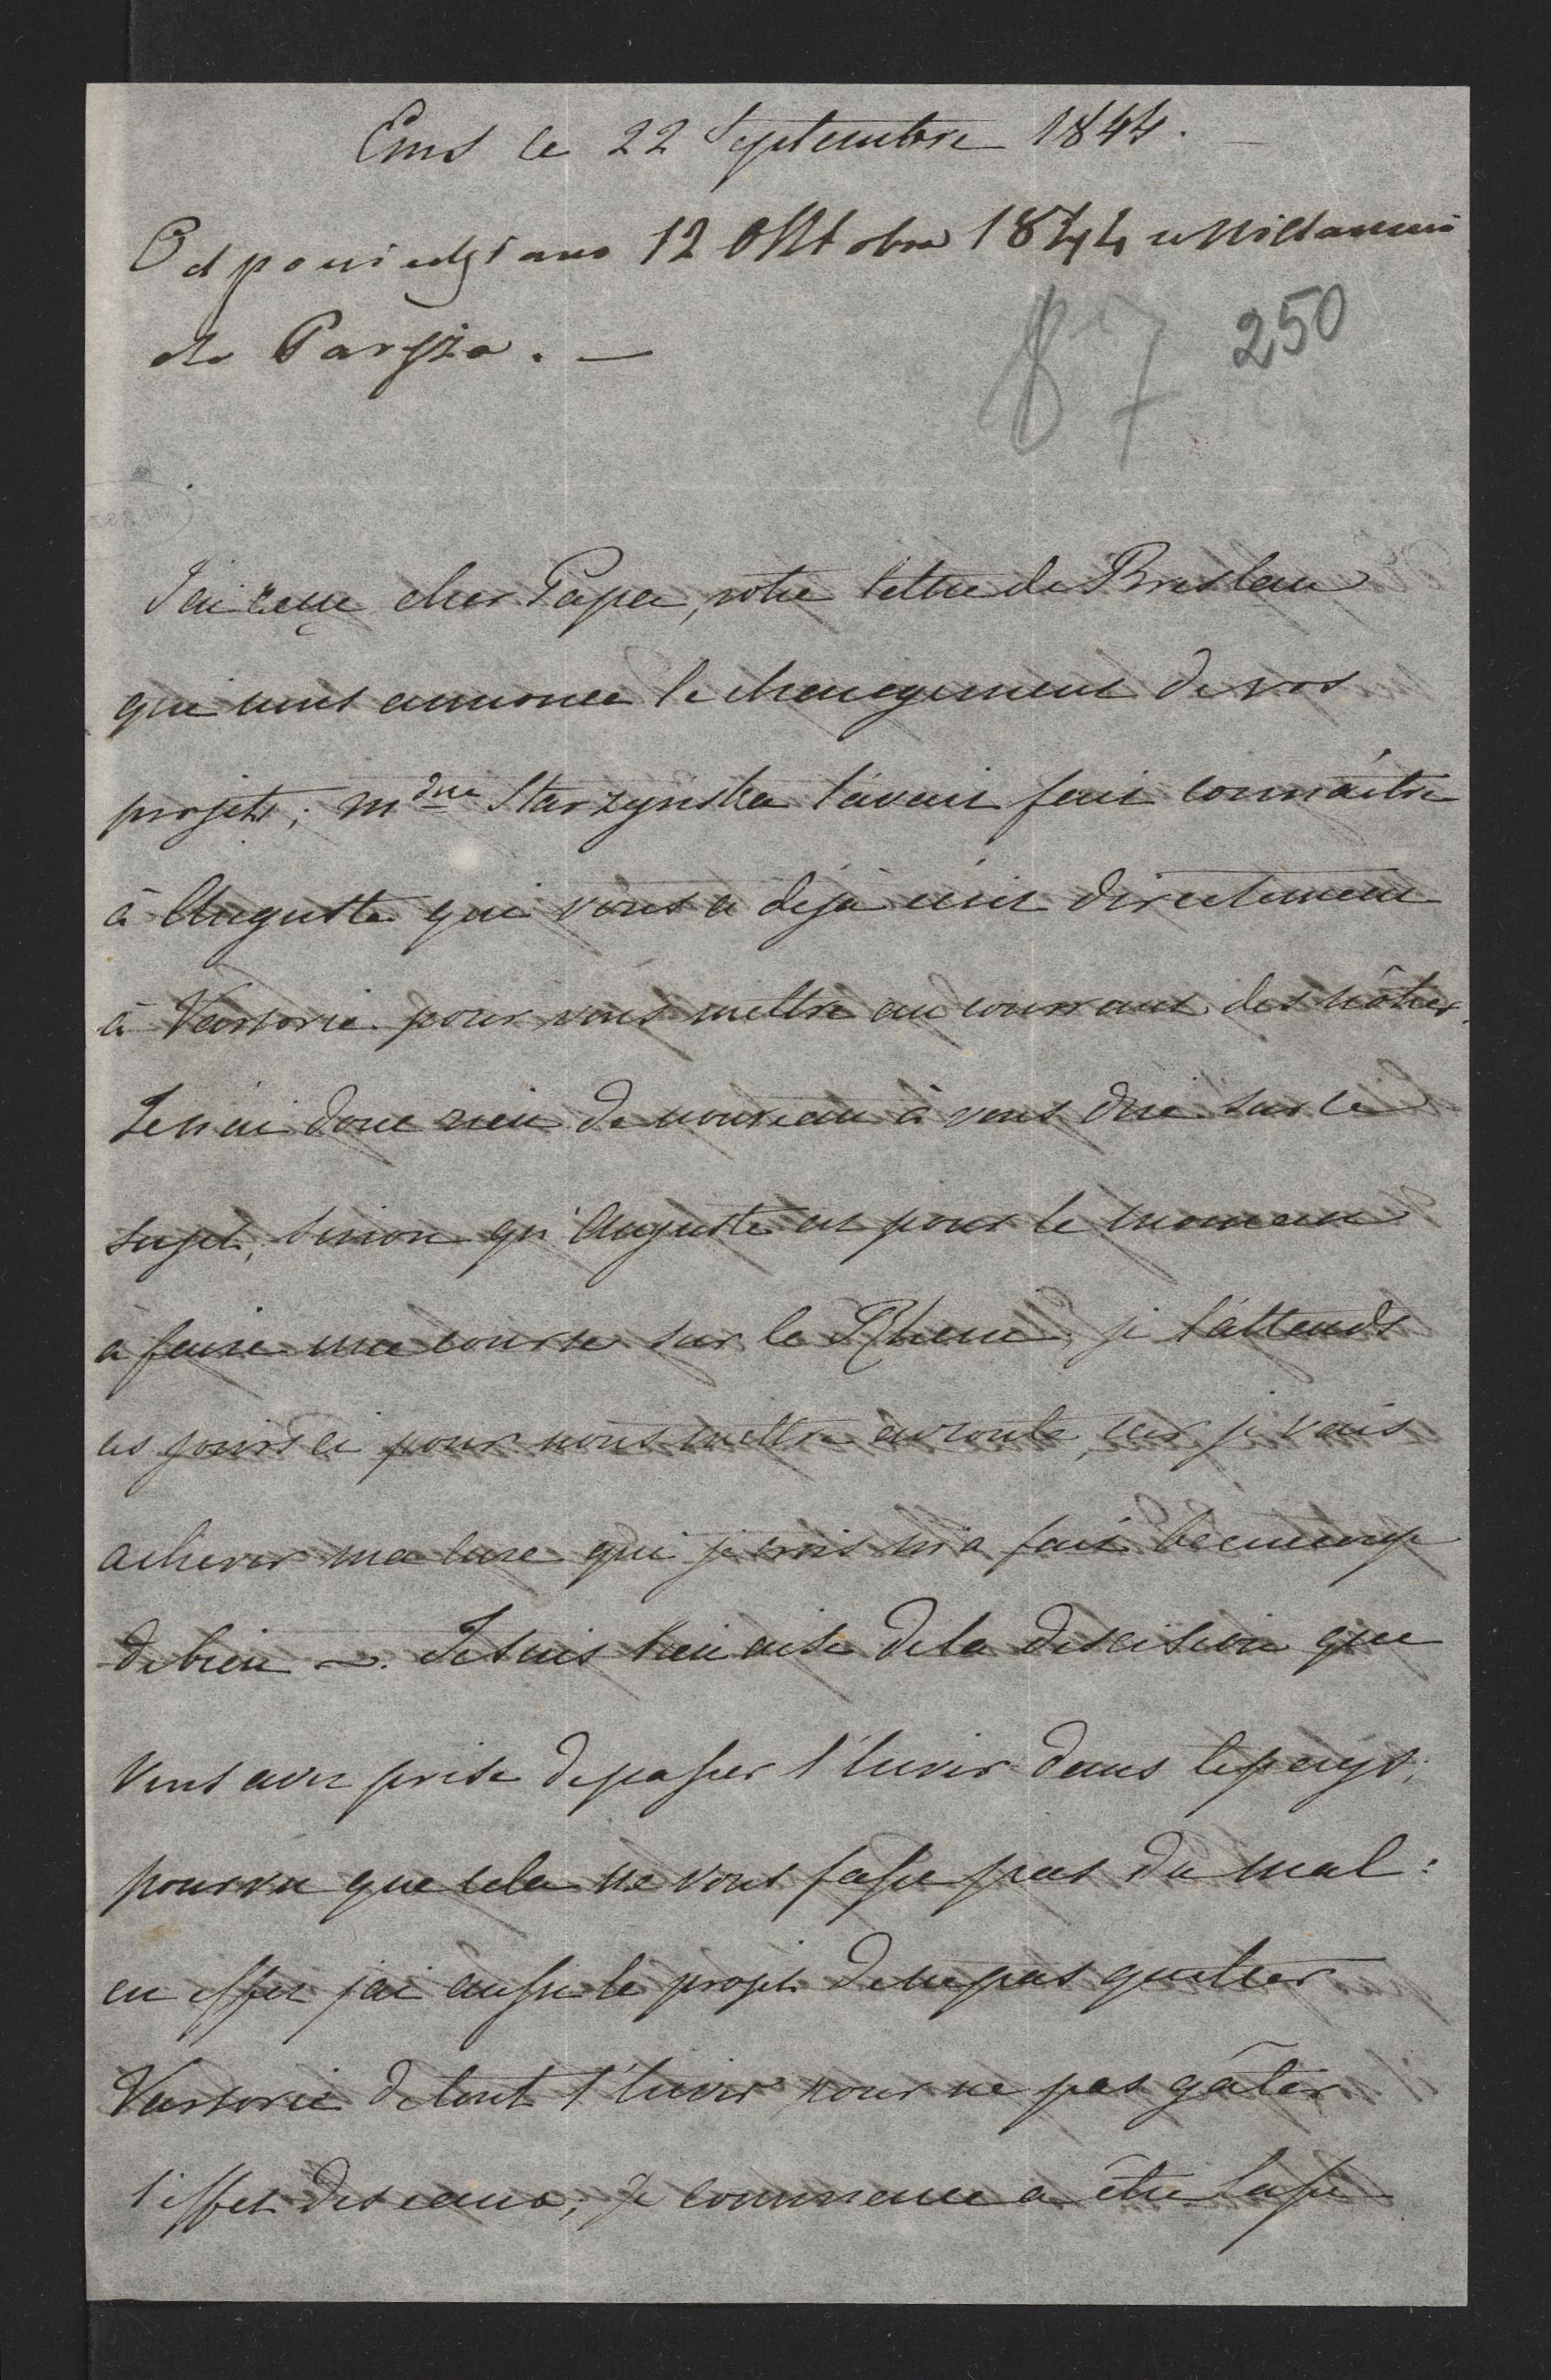 Ems le 22 Septembre 1844.
Odpowiedziano 12 Oktobra 1844 z Willanowa
do Paryża. —
87 250
J'ai reçu cher Papa, votre lettre de Breslau
qui nous annonce le changement de vos
projets; Mdme Starzynska l'avait fait connaître
à Auguste qui vous a déjà écrit directement
à Varsovie pour vous mettre au courrant des nôtres.
Je n'ai donc rien de nouveau à vous dire sur ce
sujet, sinon qu'Auguste est pour le moment
à faire une course sur le Rhein, je l'attends
ces jours ci pour nous mettre en route, car je vais
achever ma cure qui je crois m'a fait beaucoup
de bien. Je suis bien aise de la descision que
vous avez prise de passer l'hiver dans le pays;
pourvu que cela ne vous fasse pas du mal:
en effet j'ai aussi le projet de ne pas quitter
Varsovie de tout l'hiver pour ne pas gâter
l'effet des eaux; je commence a être lasse